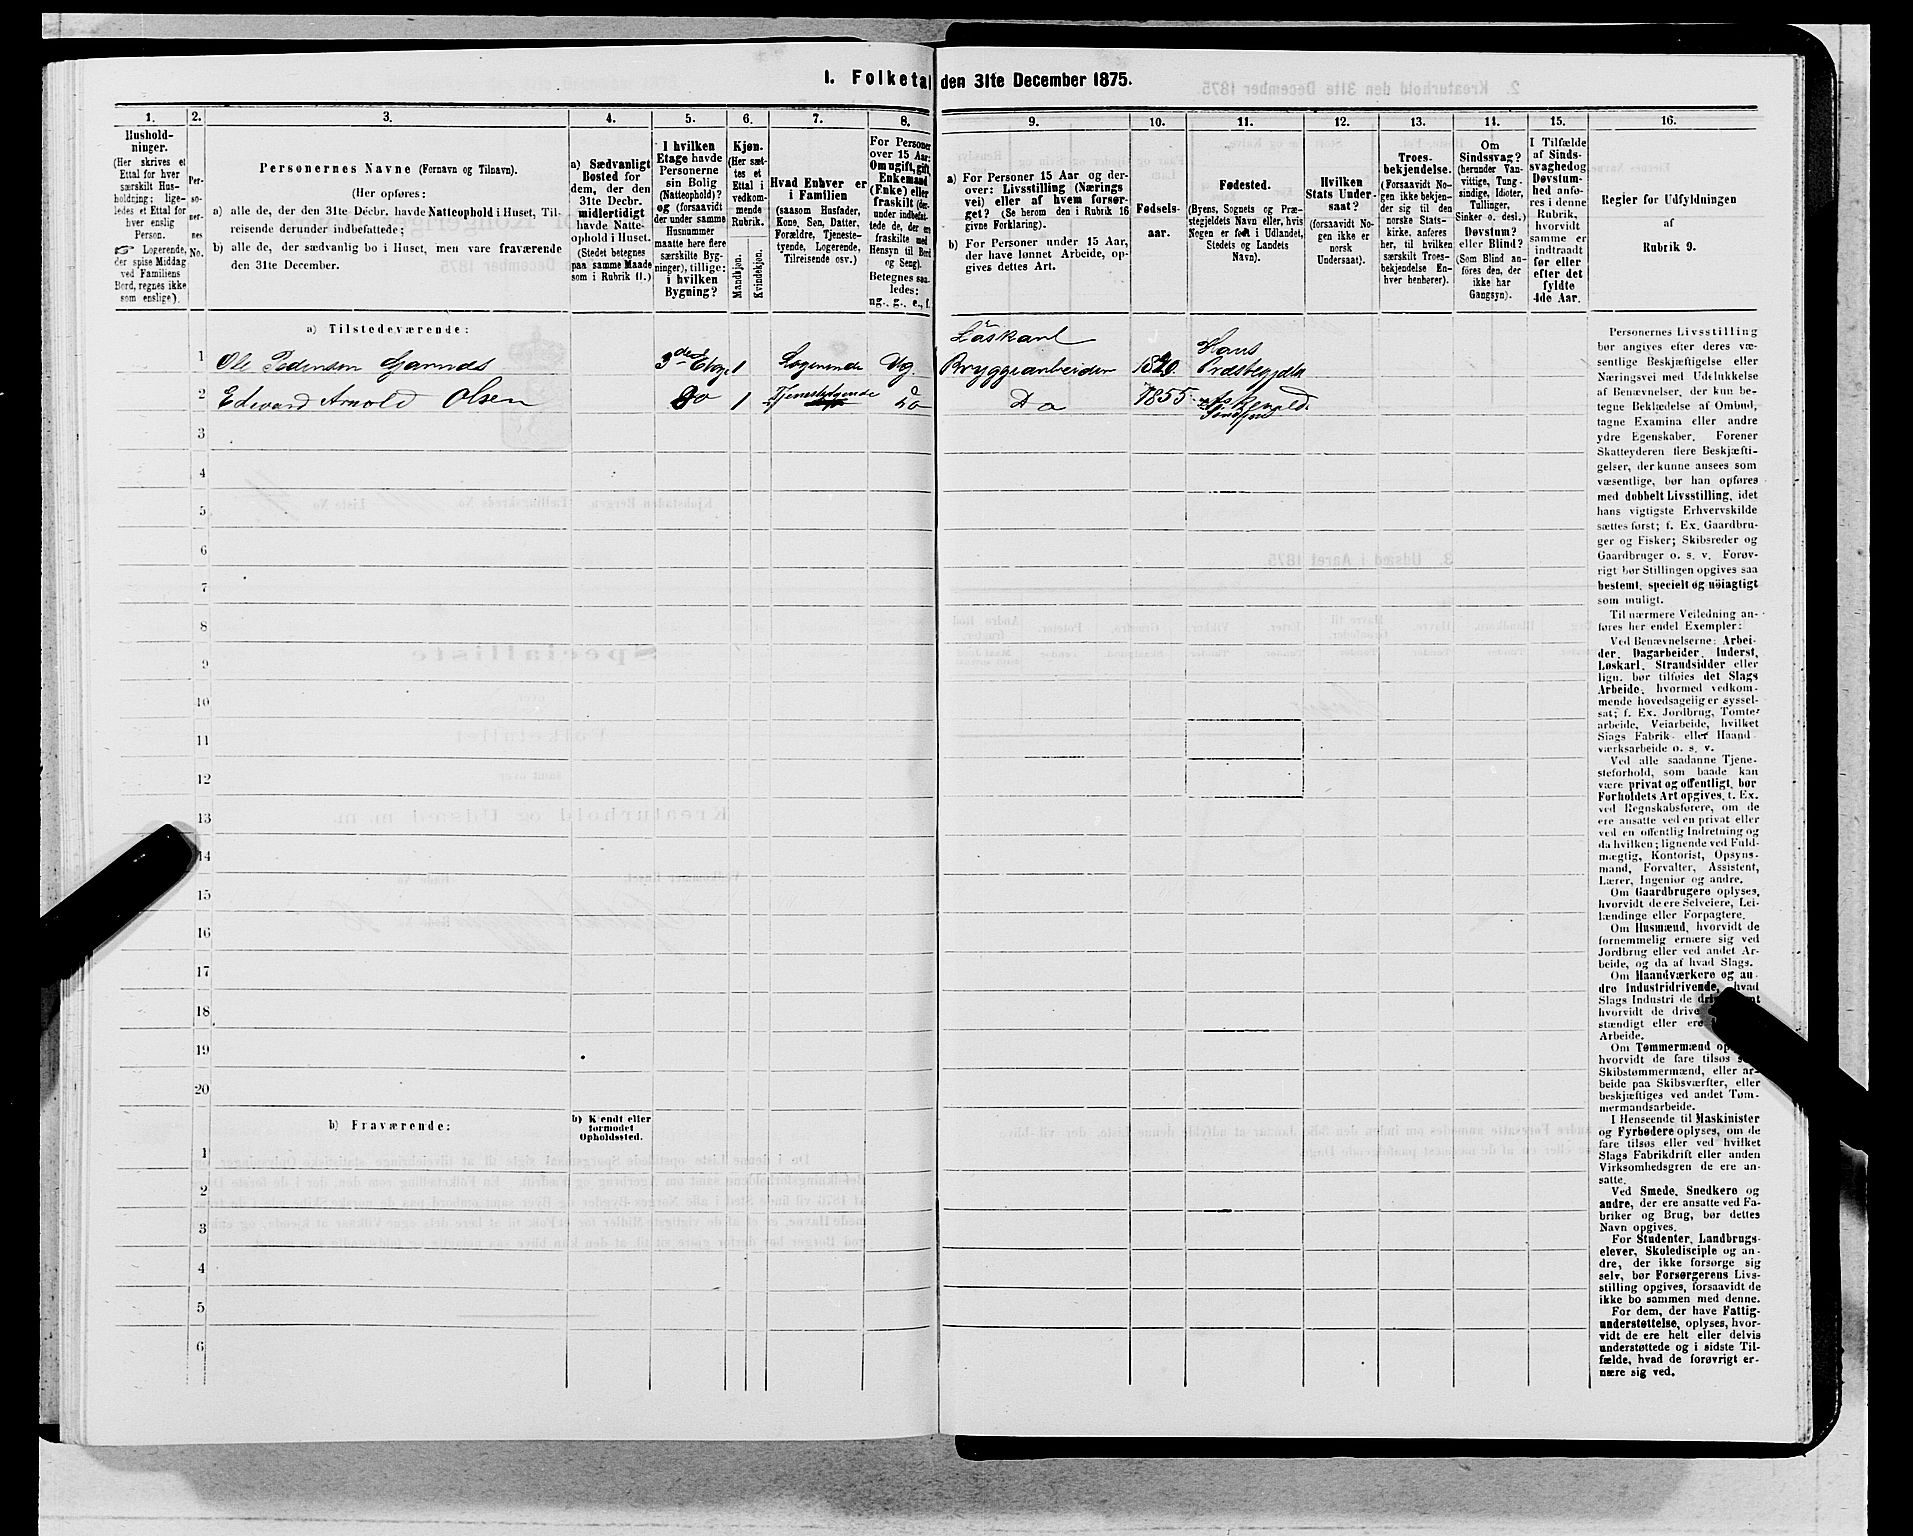 1. Folketal den 31te December 1875.
1. 2. 3. 4. 5. 6. 7. 8. 9. 10. 11. 12. 13. 14. 15. 16.
Hushold-
ninger.
(Her skrives et
Ettal for hver
særskilt Hus-
holdning; lige-
ledes et Ettal for
hver enslig
Person.
Logerende,
der spise Middag
ved Familiens
Bord, regnes ikke
som enslige).
Per-
so-
ner-
nes
No.
Personernes Navne (Fornavn og Tilnavn).
(Her opføres:
a) alle de, der den 31te Decbr. havde Natteophold i Huset, Til-
reisende derunder indbefattede;
b) alle de, der sædvanlig bo i Huset, men vare fraværende
den 31te December.
a) Sædvanligt
Bosted for
dem, der den
31te Decbr.
midlertidigt
havde Natte-
ophold i Huset.
(Stedet betegnes
paa samme Maade
som i Rubrik 11.)
I hvilken
Etage havde
Personerne
sin Bolig
(Natteophold)?
og (forsaavidt
der under samme
Husnummer
maatte høre flere
særskilte Byg-
ninger), tillige:
i hvilken
Bygning?
Kjøn.
(Her sæt-
tes et
Ettal i
vedkom-
mende
Rubrik.
Mandkjøn.
Kvindekjøn.
Hvad Enhver er
i Familien
(saasom Husfader,
Kone, Søn, Datter,
Forældre, Tjeneste-
tyende, Logerende,
Tilreisende osv.)
For Personer
over 15 Aar:
Om ugift, gift,
Enkemand
(Enke) eller
fraskilt (der-
under indbefat-
tede de, der ere
fraskilte med
Hensyn til Bord
og Seng).
Betegnes saa-
ledes:
ug., g., e., f.
a) For Personer 15 Aar og der-
over: Livsstilling (Nærings
vei) eller af hvem forsør-
get? (Se herom den i Rubrik 16
givne Forklaring).
b) For Personer under 15 Aar,
der have lønnet Arbeide, op-
gives dettes Art.
Fødsels-
aar.
Fødested.
(Byens, Sognets og Præ-
stegjeldets Navn eller, hvis
Nogen er født i Udlandet,
Stedets og Landets
Navn).
Hvilken
Stats Under-
saat?
(forsaavidt No-
gen ikke er
norsk
Undersaat).
Troes-
bekjendelse.
(Forsaavidt No-
gen ikke bekjen-
der sig til den
norske Stats-
kirke, anføres
her, til hvilken
særskilt Troes-
bekjendelse En-
hver henhører).
Om
Sindssvag?
(herunder Van-
vittige, Tung-
sindige, Idioter,
Tullinger,
Sinker o. desl.)
Døvstum?
eller Blind?
(Som Blind an-
føres den, der
ikke har
Gangsyn).
I Tilfælde
af Sinds-
svaghed og
Døvstum-
hed anfø-
res i denne
Rubrik,
hvorvidt
samme er
indtraadt
før eller
efter det
fyldte
4de Aar.
Regler for Udfyldningen
af
Rubrik 9.
a) Tilstedeværende:
1 Ole Pedersen 3die Etage 1 Logerende Ug. Løskarl Bryggearbeider Haus Præstegjeld
2 Edvard Arnold Olsen Do 1 Tjenestetyende Do Do 1855
3
4
5
6
7
8
9
10
11
12
13
14
15
16
17
18
19
20
b) Fraværende:
b) Kjendt eller
formodet
Opholdssted.
1
2
3
4
5
6
Personernes Livsstilling
bør angives efter deres væ-
sentlige Beskjæftigelse eller
Næringsvei med Udelukkelse
af Benævnelser, der kun be-
tegne Beklædelse af Ombud,
tagne Examina eller andre
ydre Egenskaber. Forener
Skatteyderen flere Beskjæfti-
gelser, der kunne ansees som
væsentlige, bør han opføres
med dobbelt Livsstilling, idet
hans vigtigste Erhvervskilde
sættes først; f. Ex. Gaardbru-
ger og Fisker; Skibsreder og
Gaardbruger o. s. v. Forøv-
rigt bør Stillingen opgives saa
bestemt, specielt og nøiagtigt
som muligt.
Til nærmere Veiledning an-
føres her endel Exempler:
Ved Benævnelserne: Arbei-
der, Dagarbeider, Inderst,
Løskarl, Strandsidder eller
lign. bør tilføies det Slags
Arbeide, hvormed vedkom-
mende hovedsagelig er syssel-
sat; f. Ex. Jordbrug, Tomte-
arbeide, Veiarbeide, hvilket
Slags Fabrik- eller Haand-
værksarbeide o. s. v.
Ved alle saadanne Tjene-
steforhold, som baade kan
være privat og offentligt, bør
Forholdets Art opgives, t. Ex.
ved Regnskabsførere, om de
ere ansatte ved en privat eller
ved en offentlig Indretning og
da hvilken; lignende ved Fuld-
mægtig, Kontorist, Opsyns-
mand, Forvalter, Assistent,
Lærer, Ingeniør og andre.
Om Gaardbrugere oplyses,
hvorvidt de ere Selveiere, Lei-
lændinge eller Forpagtere.
Om Husmænd, hvorvidt de
fornemmelig ernære sig ved
Jordbrug eller ved andet Ar-
beide, og da af hvad Slags.
Om Haandværkere og an-
dre Industridrivende, hvad
Slags Industri de
hvorvidt de drive
stændigt eller ere
Arbeide.
Om Tømmermænd
hvorvidt de fare tilsøs
Skibstømmermænd, eller ar-
beide paa Skibsværfter, eller
beskjæftiges ved andet Tøm-
mermandsarbeide.
I Henseende til Maskinister
og Fyrbødere oplyses, om de
fare tilsøs eller ved hvilket
Slags Fabrikdrift eller anden
Virksomhedsgren de ere an-
satte.
Ved Smede, Snedkere og
andre, der ere ansatte ved Fa-
briker og Brug, bør dettes
Navn opgives.
For Studenter, Landbrugs-
elever, Skoledisciple og an-
dre, der ikke forsørge sig
selv, bør Forsørgerens Livs-
stilling opgives, forsaavidt de
ikke bo sammen med denne.
For dem, der have Fattig-
understøttelse, oplyses, hvor-
vidt de ere helt eller delvis
understøttede og i sidste Til-
fælde, hvad de forøvrigt er-
nære sig ved.